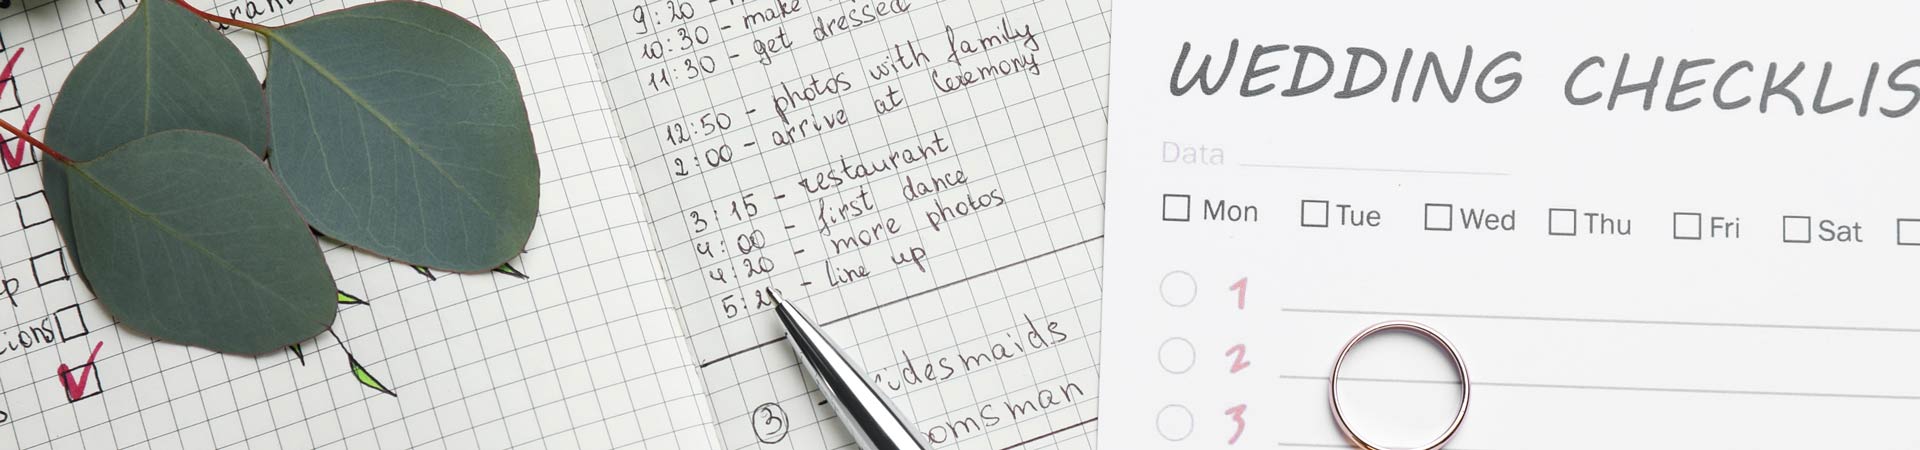 9:20 -
10:30 - make
11:30 - get dressed
12:50 - photos with family
2:00 - arrive at Ceremony
3:15 - restaurant
4:00 - first dance
4:20 - more photos
5:2 - line up
3
idesmaids
omsman
p
tions
WEDDING CHECKLIS
Data
Mon Tue Wed Thu Fri Sat
1
2
3